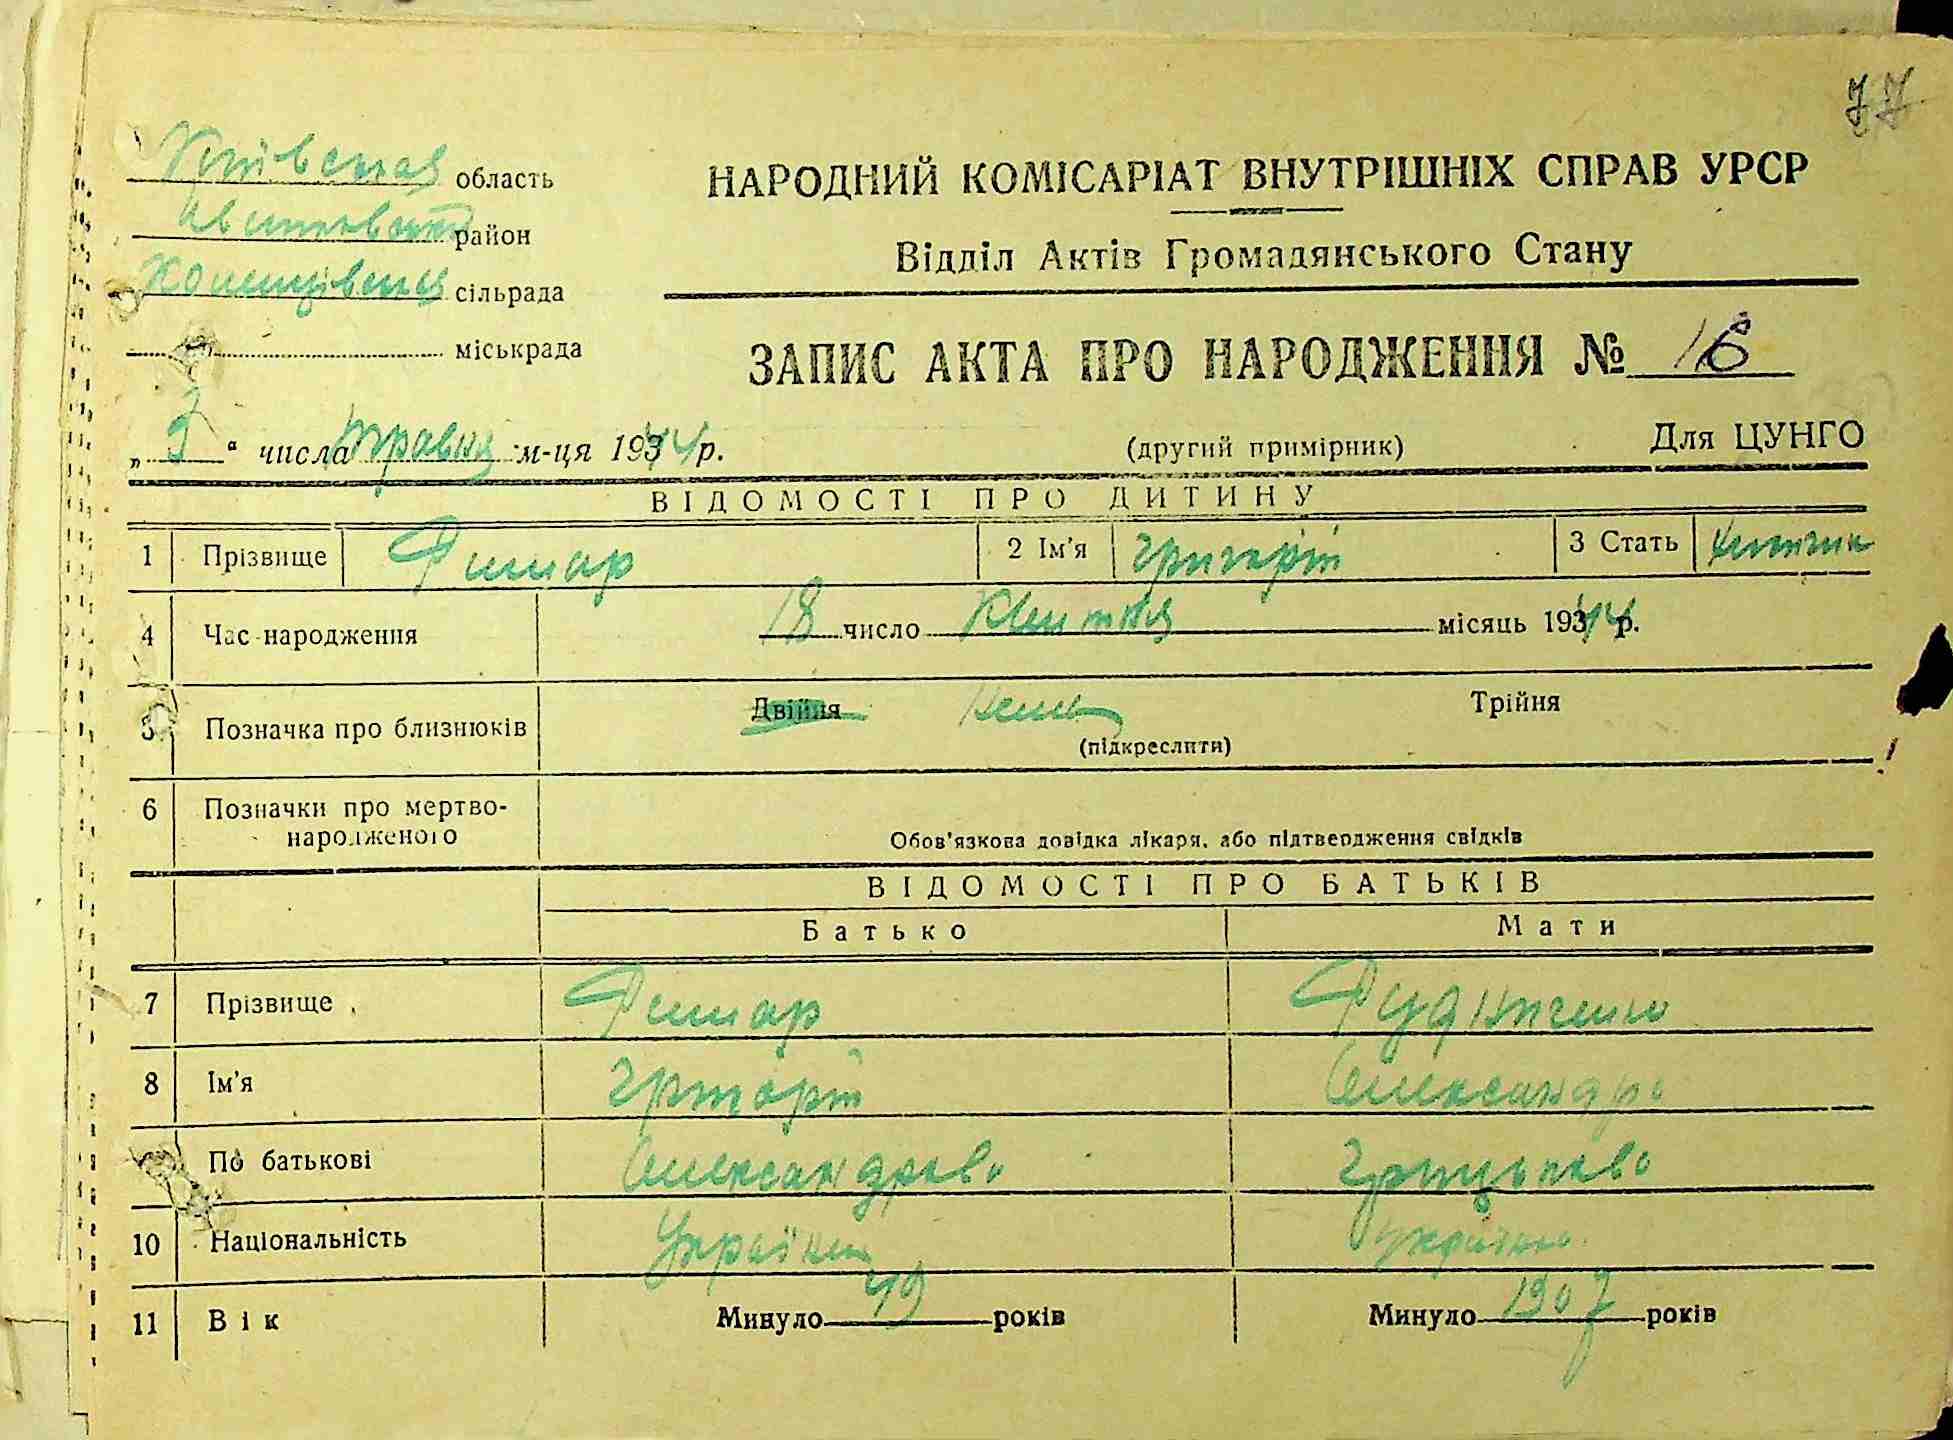 77
Київська область
район
сільрада
міськрада
НАРОДНИЙ КОМІСАРІАТ ВНУТРІШНІХ СПРАВ УРСР
Відділ Актів Громадянського Стану
ЗАПИС АКТА ПРО НАРОДЖЕННЯ № 18
„3“ числа травня м-ця 1944 р.
(другий примірник)
Для ЦУНГО
ВІДОМОСТІ ПРО ДИТИНУ
1 Прізвище 2 Ім'я Григорій 3 Стать
4 Час народження 18 число Квітня місяць 1944 р.
5 Позначка про близнюків Двійня Трійня
(підкреслити)
6 Позначки про мертво-
народженого Обов'язкова довідка лікаря, або підтвердження свідків
ВІДОМОСТІ ПРО БАТЬКІВ
Батько Мати
7 Прізвище
8 Ім'я Григорій Олександра
9 По батькові Олександров Грицьков
10 Національність
11 Вік Минуло 49 років Минуло 1907 років